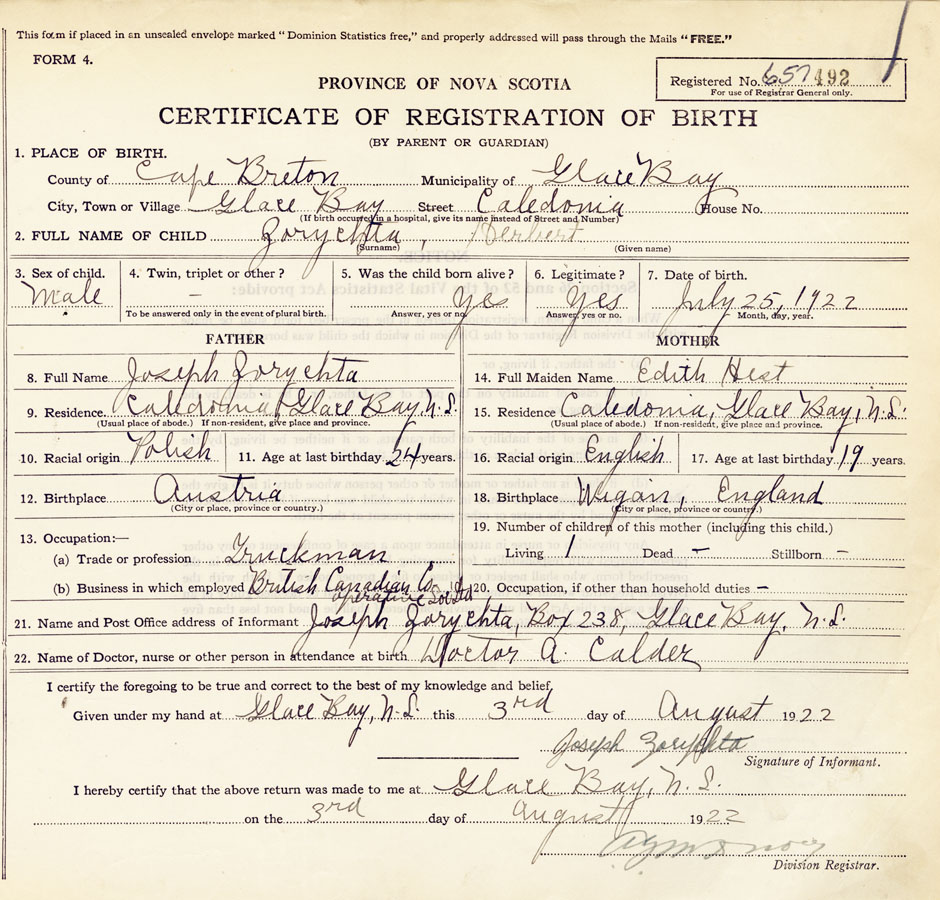 This form if placed in an unsealed envelope marked "Dominion Statistics free," and properly addressed will pass through the Mails "FREE."
FORM 4.
Registered No. 657 492
For use of Registrar General only.
PROVINCE OF NOVA SCOTIA
CERTIFICATE OF REGISTRATION OF BIRTH
(BY PARENT OR GUARDIAN)
1. PLACE OF BIRTH.
County of Cape Breton Municipality of Glace Bay
City, Town or Village Glace Bay Street Caledonia House No.
(If birth occurred in a hospital, give its name instead of Street and Number)
2. FULL NAME OF CHILD Zorychta, Herbert
(Surname) (Given name)
3. Sex of child. 4. Twin, triplet or other? 5. Was the child born alive? 6. Legitimate? 7. Date of birth.
Male — Yes Yes July 25, 1922
To be answered only in the event of plural birth. Answer, yes or no. Answer, yes or no. Month, day, year.
FATHER MOTHER
8. Full Name Joseph Zorychta 14. Full Maiden Name Edith Hest
9. Residence. Caledonia, Glace Bay N.S. 15. Residence Caledonia, Glace Bay, N.S.
(Usual place of abode.) If non-resident, give place and province. (Usual place of abode.) If non-resident, give place and province.
10. Racial origin Polish 11. Age at last birthday 24 years. 16. Racial origin English 17. Age at last birthday 19 years.
12. Birthplace Austria 18. Birthplace Wigan, England
(City or place, province or country.) (City or place, province or country.)
19. Number of children of this mother (including this child.)
13. Occupation:—
(a) Trade or profession Truckman Living 1 Dead – Stillborn –
(b) Business in which employed British Canadian Co operative Soc Ltd 20. Occupation, if other than household duties –
21. Name and Post Office address of Informant Joseph Zorychta, Box 238, Glace Bay, N.S.
22. Name of Doctor, nurse or other person in attendance at birth Doctor A. Calder
I certify the foregoing to be true and correct to the best of my knowledge and belief
Given under my hand at Glace Bay, N.S. this 3rd day of August 1922
Joseph Zorychta
Signature of Informant.
I hereby certify that the above return was made to me at Glace Bay, N.S.
on the 3rd day of August 1922
Division Registrar.